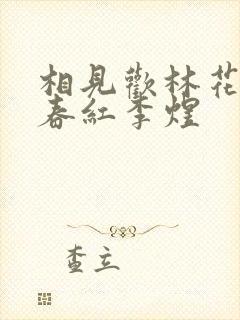 相見歡林花
春紅李煜
查立